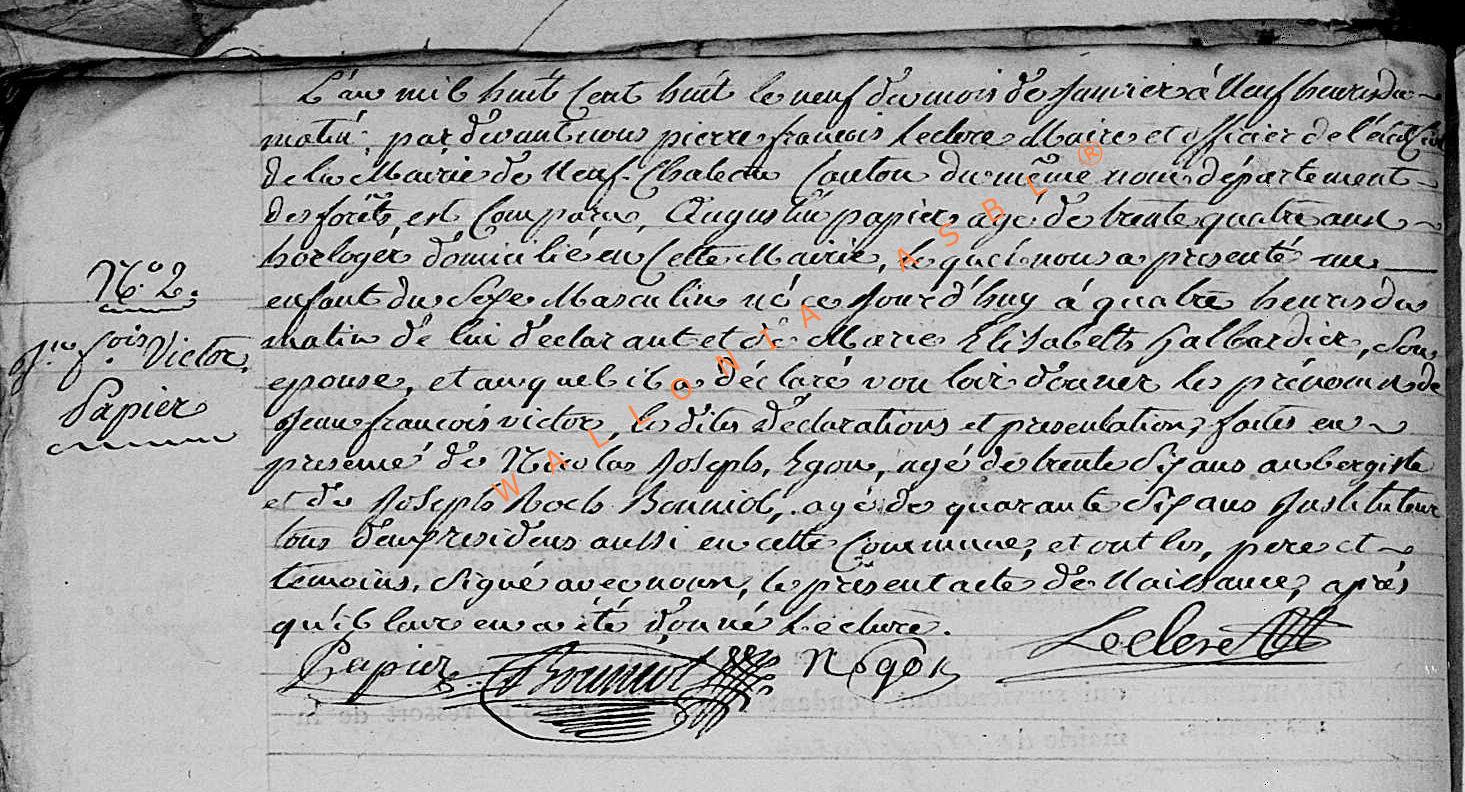 L'an mil huit Cent huit le neuf du mois de Janvier à Neuf heures du
matin; par devant nous pierre françois Leclerc Maire et officier de l'état Civil
de la Mairie de Neuf-Chateau Canton du même nom département
des forêts, est Comparu, Augustin papier agé de trente quatre ans
horloger domicilié en Cette Mairie, le quel nous a presenté un
enfant du Sexe Masculin né ce Jourd'huy à quatre heures du
matin de lui déclarant et de Marie Elisabeth Galhardier, Son
epouse, et au quel il a déclaré vouloir donner les prénoms de
Jean françois victor, les dites déclarations et presentation, faites en
presence de Nicolas Joseph, Egon, agé de trente Six ans aubergiste
et de Joseph Roch Bonniol, agé de quarante Six ans Instituteur
tous deux residens aussi en cette Commune, et ont les, pere et
temoins, Signé avec nous, le present acte de Naissance, après
qu'il leur en a été donné Lecture.
Papier Bonniol N Egon Leclerc
N.o 2.
Jn. fçois Victor
Papier
WALLONIA ASBL ®